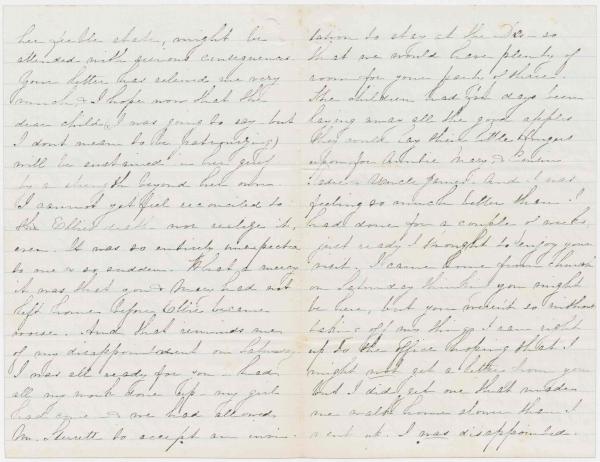 her feeble state, might be
attended with serious consequences.
Your letter has relieved me very
much & I hope now that the
dear child (I was going to say but
I dont mean to be patronizing)
will be sustained in her grief
by a strength beyond her own.
I cannot yet feel reconciled to
the Ellies death nor realize it,
even. It was so entirely unexpected
to me & so sudden. What a mercy
it was that you & Mary had not
left home before Ellie became
worse. And that reminds me
of my disappointment on Saturday.
I was all ready for you - had
all my work done up - my girls
had gone & we had allowed
Mr. Sterrett to accept an invi-
tation to stay at the Drs so
that we would have plenty of
room for your party of three.
The children had for days been
laying away all the good apples
they could lay their little fingers
upon for Auntie Mary &
& Uncle James. And I was
feeling so much better than I
had done for a couple of weeks,
just ready I thought to enjoy your
visit, I came home from church
on Saturday thinking you might
be here, but you weren't so without
taking off my things I ran right
up to the office hoping that I
might not get a letter from you
but I did get one that made
me walk home slower than I
went up. I was disappointed.